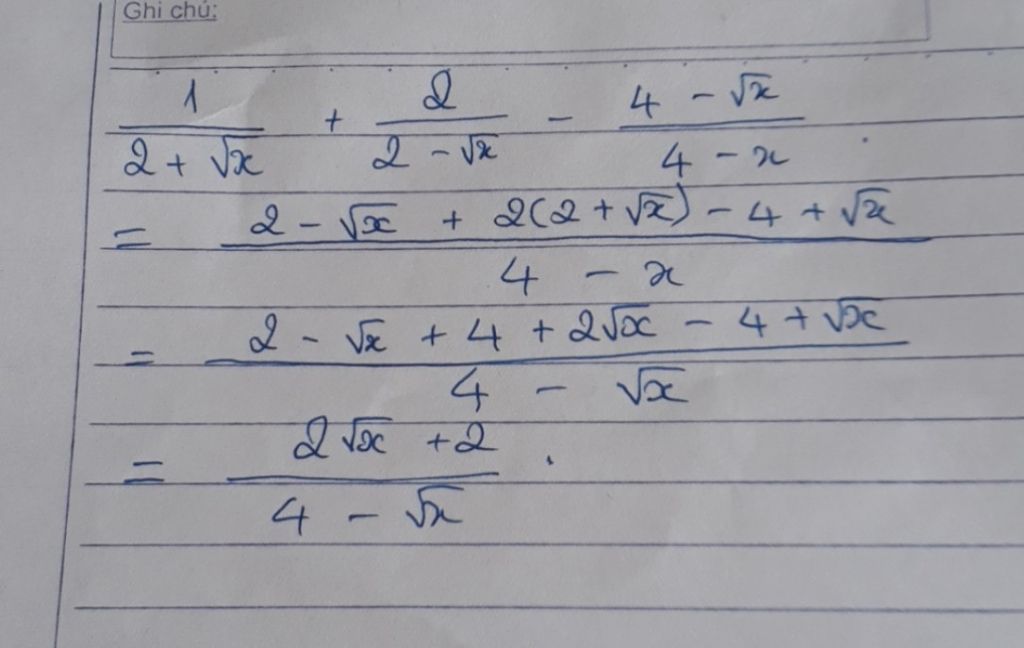 Ghi chú:
1/(2 + √x) + 2/(2 - √x) - (4 - √x)/(4 - x)
= (2 - √x + 2(2 + √x) - 4 + √x)/(4 - x)
= (2 - √x + 4 + 2√x - 4 + √x)/(4 - √x)
= (2√x + 2)/(4 - √x).